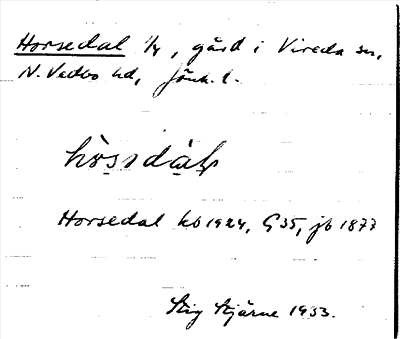 Horsedal 1/4, gård i Vireda sn,
N. Vedbo hd, Jönk. l.
Horsedal kb 1924, G 35, jb 1877
Stig Stjärne 1933.